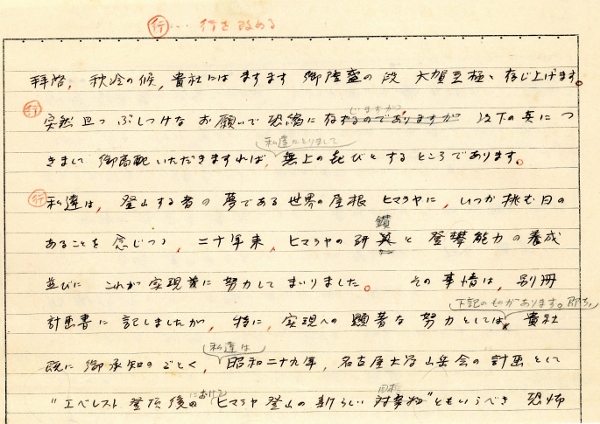 行…行を改める
拝啓、秋冷の候、貴社にはますます御隆盛の段 大賀至極に存じ上げます。
行
じますが、
突然且つぶしつけなお願いで恐縮に存ずるのでありますが 以下の其につ
私達にとりまして
きまして御高配いただきますれば、無上の喜びとするところであります。
行 私達は、登山する者の夢である世界の屋根ヒマラヤに、いつか挑む日の
鑽
あることを念じつつ、二十年来、ヒマラヤの研 と登攀能力の養成
並びに これが実現業に努力してまいりました。 その事情は、別冊
下記のものがあります。即ち、
計画書に記しましたが、特に、実現への顕著な努力としては、貴社
私達は
既に御承知のごとく、昭和二十九年、名古屋大学山岳会の計画として
における
"エベレスト登頂後の ヒマラヤ登山の新らしい "ともいうべき 恐怖